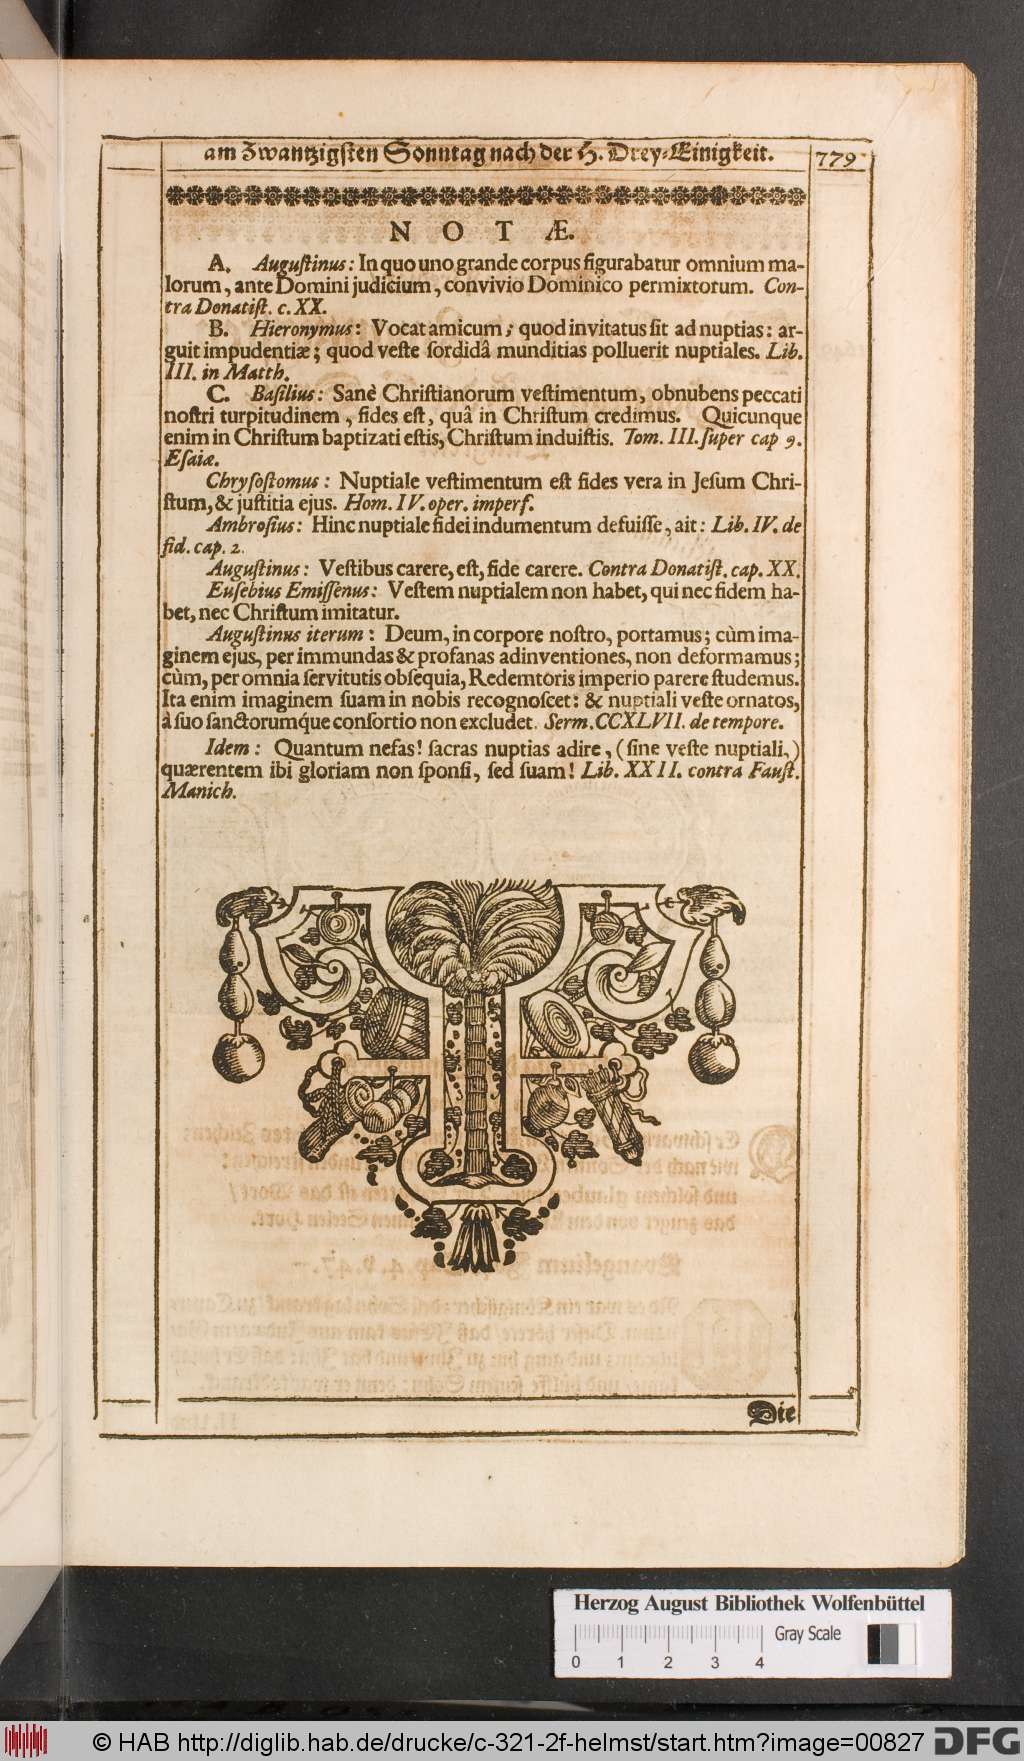 am Zwantzigſten Sonntag nach der H. Drey-Einigkeit. 779
NOTÆ.
A. Auguſtinus: In quo uno grande corpus figurabatur omnium ma-
lorum, ante Domini judicium, convivio Dominico permixtorum. Con-
tra Donatiſt. c. XX.
B. Hieronymus: Vocat amicum; quod invitatus ſit ad nuptias: ar-
guit impudentiæ; quod veſte ſordidâ munditias polluerit nuptiales. Lib.
III. in Matth.
C. Baſilius: Sanè Chriſtianorum veſtimentum, obnubens peccati
noſtri turpitudinem, fides eſt, quâ in Chriſtum credimus. Quicunque
enim in Chriſtum baptizati eſtis, Chriſtum induiſtis. Tom. III. ſuper cap 9.
Eſaiæ.
Chryſoſtomus: Nuptiale veſtimentum eſt fides vera in Jeſum Chri-
ſtum, & juſtitia ejus. Hom. IV. oper. imperf.
Ambroſius: Hinc nuptiale fidei indumentum defuiſſe, ait: Lib. IV. de
fid. cap. 2.
Auguſtinus: Veſtibus carere, eſt, fide carere. Contra Donatiſt. cap. XX.
Euſebius Emiſſenus: Veſtem nuptialem non habet, qui nec fidem ha-
bet, nec Chriſtum imitatur.
Auguſtinus iterum: Deum, in corpore noſtro, portamus; cùm ima-
ginem ejus, per immundas & profanas adinventiones, non deformamus;
cùm, per omnia ſervitutis obſequia, Redemtoris imperio parere ſtudemus.
Ita enim imaginem ſuam in nobis recognoſcet: & nuptiali veſte ornatos,
à ſuo ſanctorumq́ue conſortio non excludet. Serm. CCXLVII. de tempore.
Idem: Quantum nefas! ſacras nuptias adire, (ſine veſte nuptiali,)
quærentem ibi gloriam non ſponſi, ſed ſuam! Lib. XXII. contra Fauſt.
Manich.
Die
Herzog August Bibliothek Wolfenbüttel
Gray Scale
0 1 2 3 4
© HAB http://diglib.hab.de/drucke/c-321-2f-helmst/start.htm?image=00827 DFG